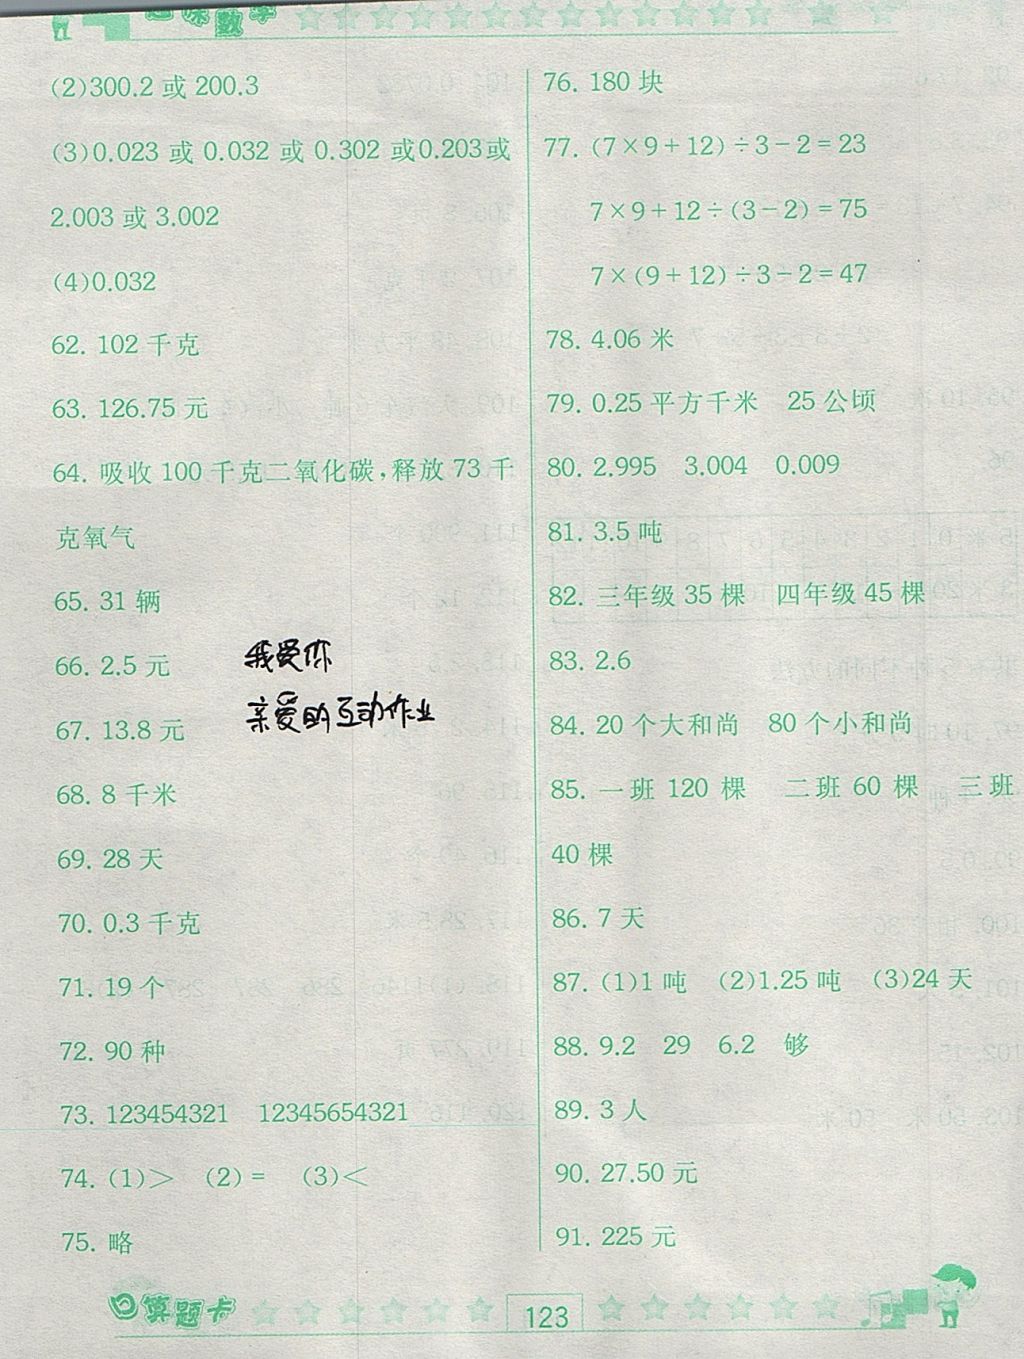 (2)300.2 或 200.3
(3)0.023 或 0.032 或 0.302 或0.203或
2.003 或 3.002
(4)0.032
62. 102 千克
63. 126.75 元
64. 吸收 100 千克二氧化碳,释放 73 千
克氧气
65. 31 辆
66. 2.5 元
67. 13.8 元
68. 8 千米
69. 28 天
70. 0.3 千克
71. 19 个
72. 90 种
73. 123454321 12345654321
74. (1)> (2)= (3)<
75. 略
我爱你
亲爱的互动作业
76. 180 块
77. (7×9+12)÷3-2=23
7×9+12÷(3-2)=75
7×(9+12)÷3-2=47
78. 4.06 米
79. 0.25 平方千米 25 公顷
80. 2.995 3.004 0.009
81. 3.5 吨
82. 三年级 35 棵 四年级 45 棵
83. 2.6
84. 20 个大和尚 80 个小和尚
85. 一班 120 棵 二班 60 棵 三班
40 棵
86. 7 天
87. (1)1 吨 (2)1.25 吨 (3)24 天
88. 9.2 29 6.2 够
89. 3 人
90. 27.50 元
91. 225 元
口算题卡
123